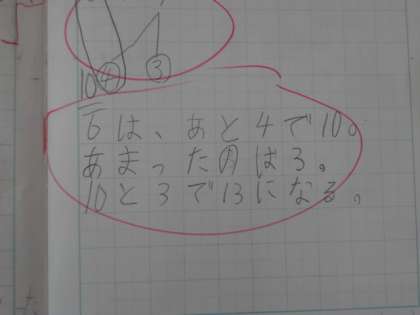 ④ ③
10
6は、あと4で10。
あまったのは3。
10と3で13になる。